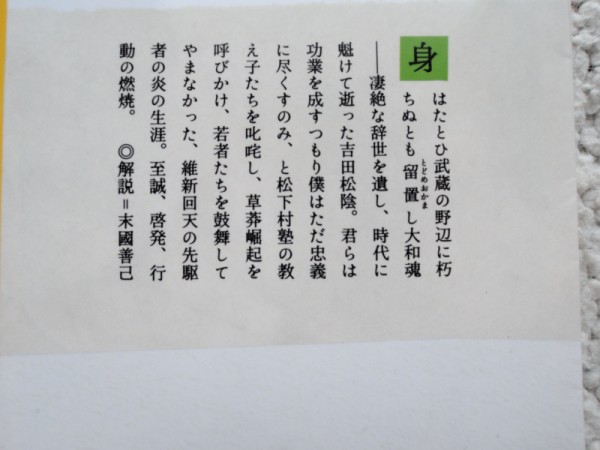 身はたとひ武蔵の野辺に朽
ちぬとも留置し大和魂
とどめおかま
――凄絶な辞世を遺し、時代に
魁けて逝った吉田松陰。君らは
功業を成すつもり僕はただ忠義
に尽くすのみ、と松下村塾の教
え子たちを叱咤し、草莽崛起を
呼びかけ、若者たちを鼓舞して
やまなかった、維新回天の先駆
者の炎の生涯。至誠、啓発、行
動の燃焼。 ◎解説=末國善己